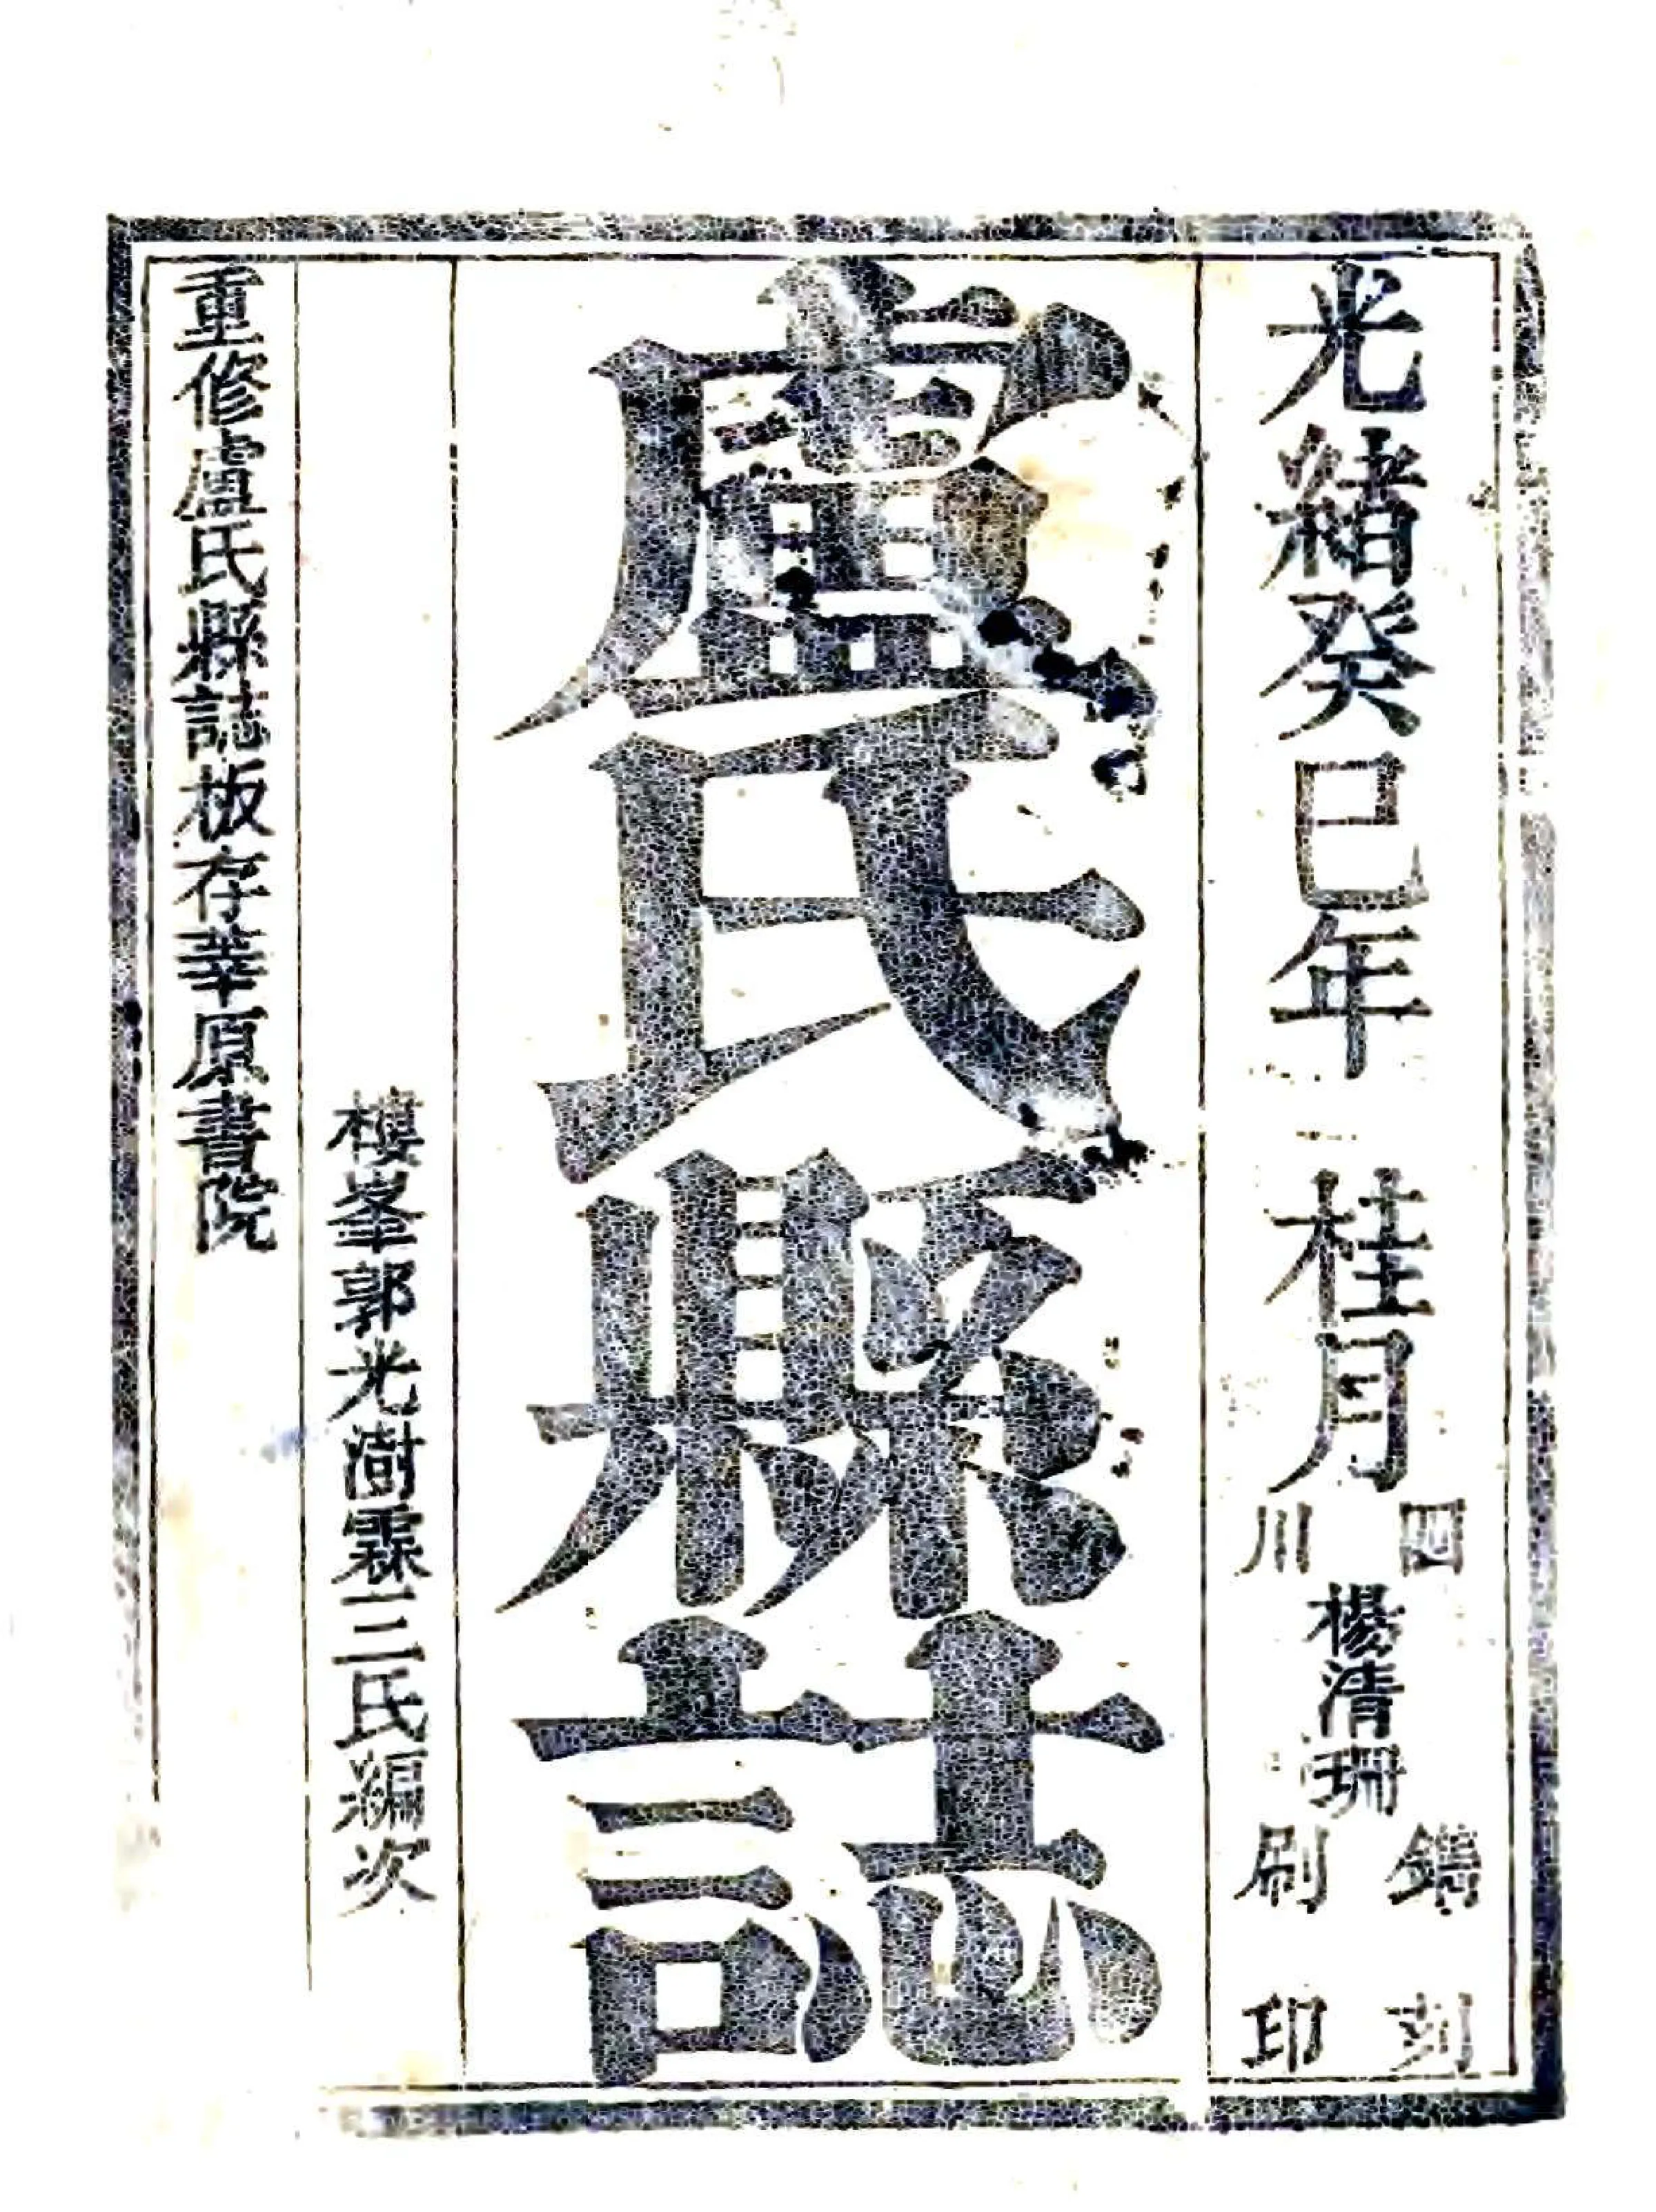 光緒癸巳年 桂月 四川楊清珊鐫刻刷印
盧氏縣誌
樓峯郭光澍霖三氏編次
重修盧氏縣誌板存莘原書院